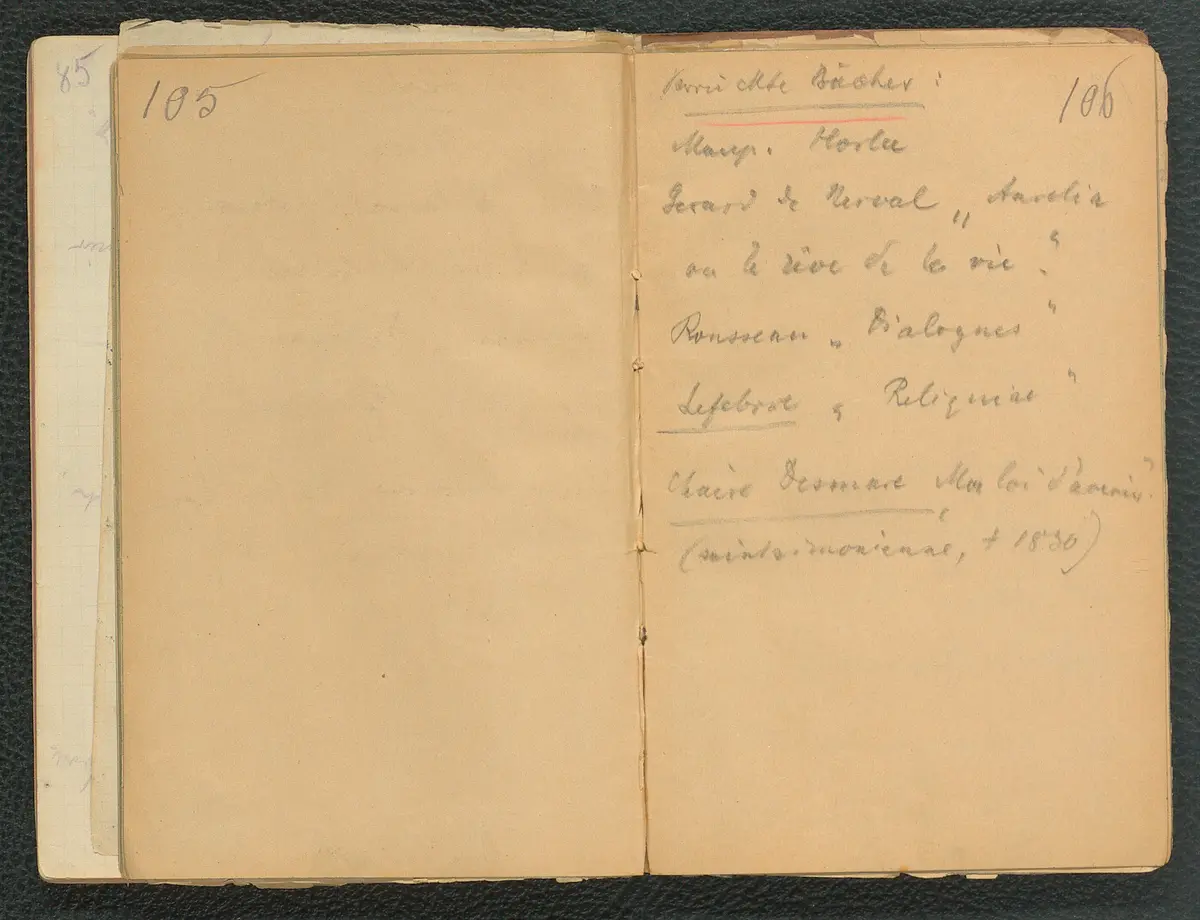 85
105
106
Verrückte Bücher :
Maup. Horla
Gerard de Nerval „ Aurelia
ou le rêve de la vie."
Rousseau „ Dialogues "
Lefebvre „ Reliquiae "
Claire Desmare „ Ma loi d'avenir"
(saintsimonienne, † 1830)